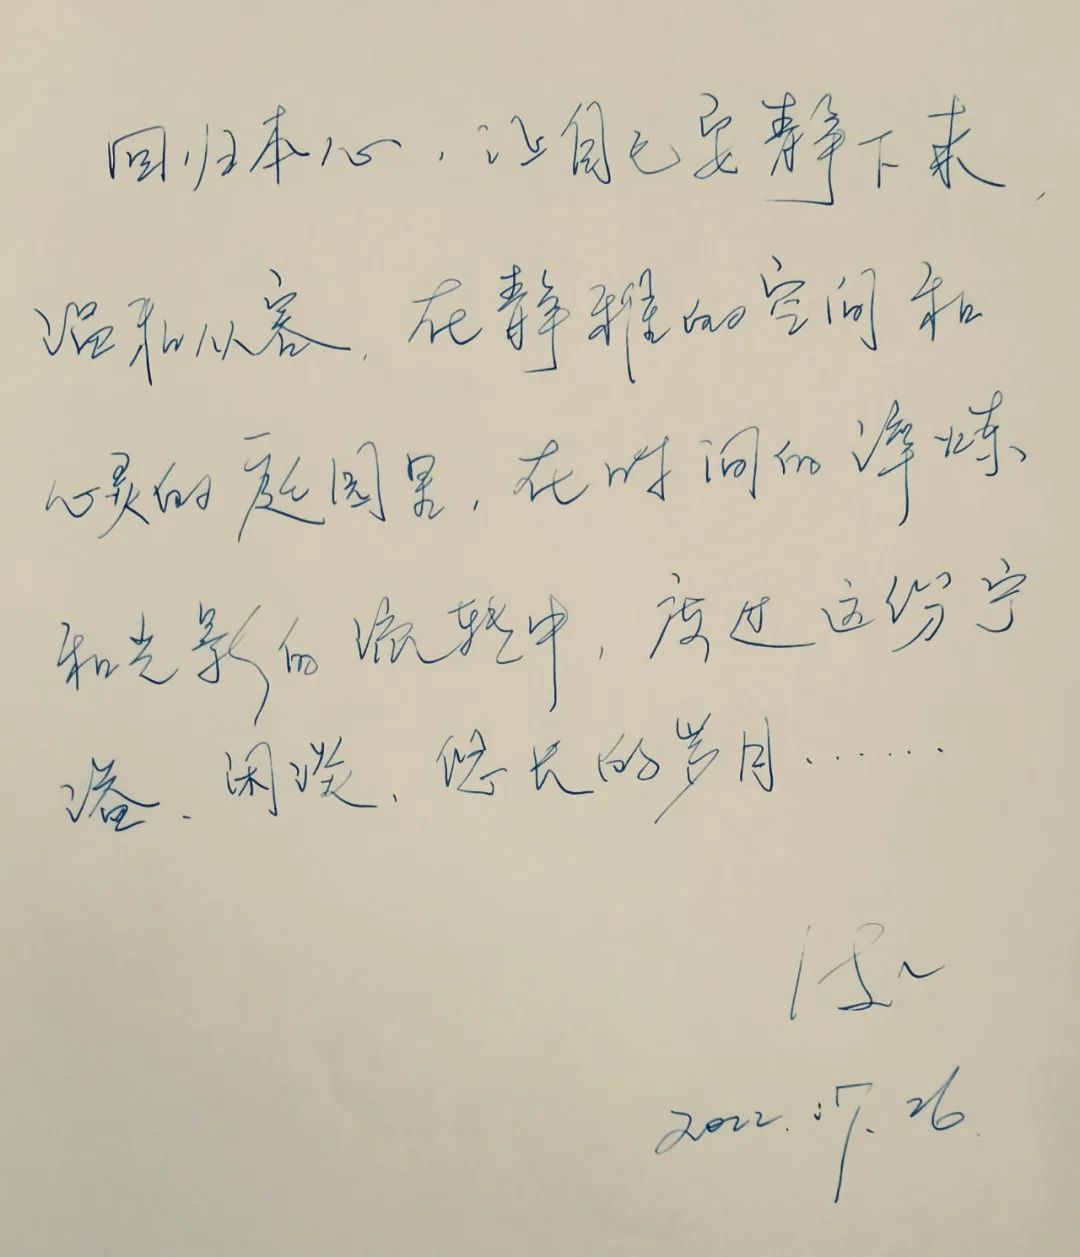 回归本心，让自己安静下来，
温和从容，在静雅的空间和
心灵的庭园里，在时间的淬炼
和光影的流转中，度过这份宁
谧、闲淡、悠长的岁月……
2022.07.26